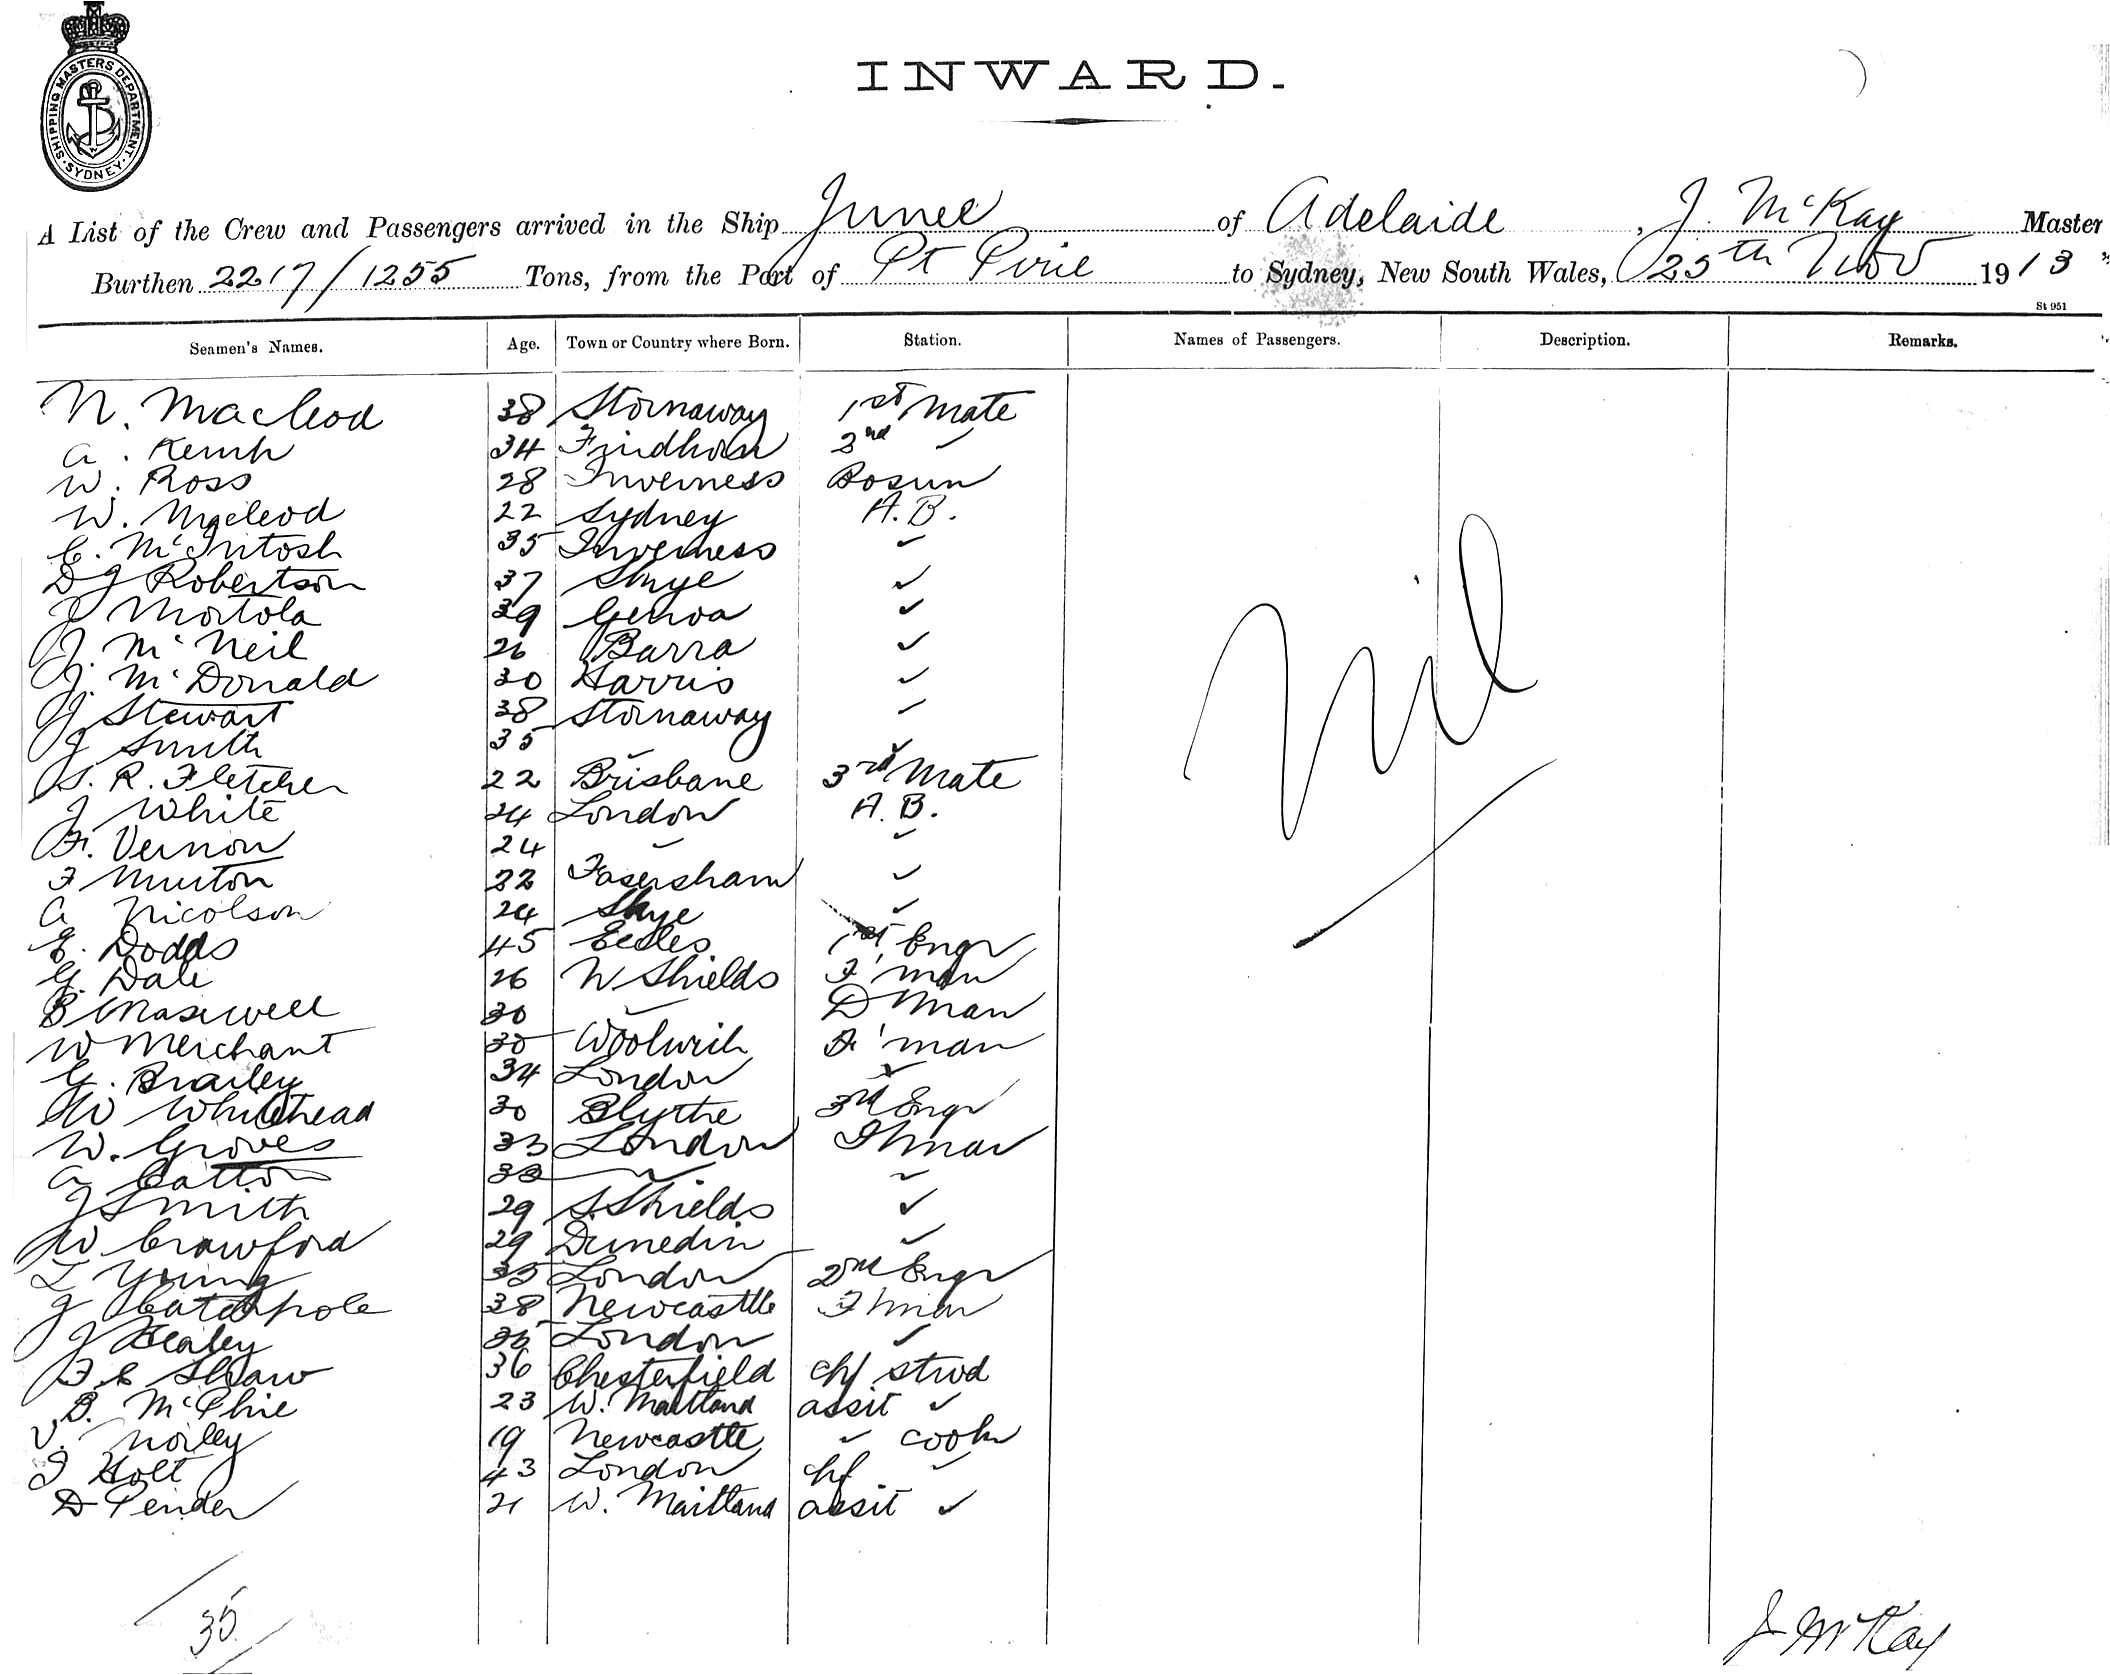 SHIPPING MASTERS DEPARTMENT · SYDNEY ·
INWARD.
A List of the Crew and Passengers arrived in the Ship Junee of Adelaide, J. McKay Master
Burthen 2217/1255 Tons, from the Port of Pt Pirie to Sydney, New South Wales, 25th Nov 1913
St 951
Seamen's Names. Age. Town or Country where Born. Station. Names of Passengers. Description. Remarks.
N. Macleod 38 Stornaway 1st Mate
A. Kemp 34 Findhorn 2nd ✓
W. Ross 28 Inverness Bosun
W. Macleod 22 Sydney A.B.
C. McIntosh 35 Inverness ✓
D J Robertson 37 Skye ✓
J Mortola 39 Genoa ✓
J. McNeil 26 Barra ✓
J. McDonald 30 Harris ✓
J Stewart 38 Stornaway ✓
J Smith 35 ✓ ✓
S. R. Fletcher 22 Brisbane 3rd Mate
J White 24 London A.B.
F. Vernon 24 ✓ ✓
F Murton 22 Faversham ✓
A Nicolson 24 Skye ✓
E. Dodds 45 Eccles 1st Engr
G. Dale 26 N Shields F'man
B Maxwell 30 ✓ D Man
W Merchant 35 Woolwich F'man
G. Brailey 34 London ✓
W Whitehead 30 Blythe 3rd Engr
W. Groves 33 London Fman
A Catton 33 ✓ ✓
J Smith 29 S. Shields ✓
W Crawford 29 Dunedin ✓
L Young 35 London 2nd Engr
J Catchpole 38 Newcastle Fman
J Bealey 35 London ✓
F. C Shaw 36 Chesterfield chf stwd
B. McPhie 23 W. Maitland assit ✓
V. Norley 19 Newcastle ✓ cook
J Holt 43 London chf ✓
D Pender 21 W. Maitland assit ✓
Nil
35
J McKay